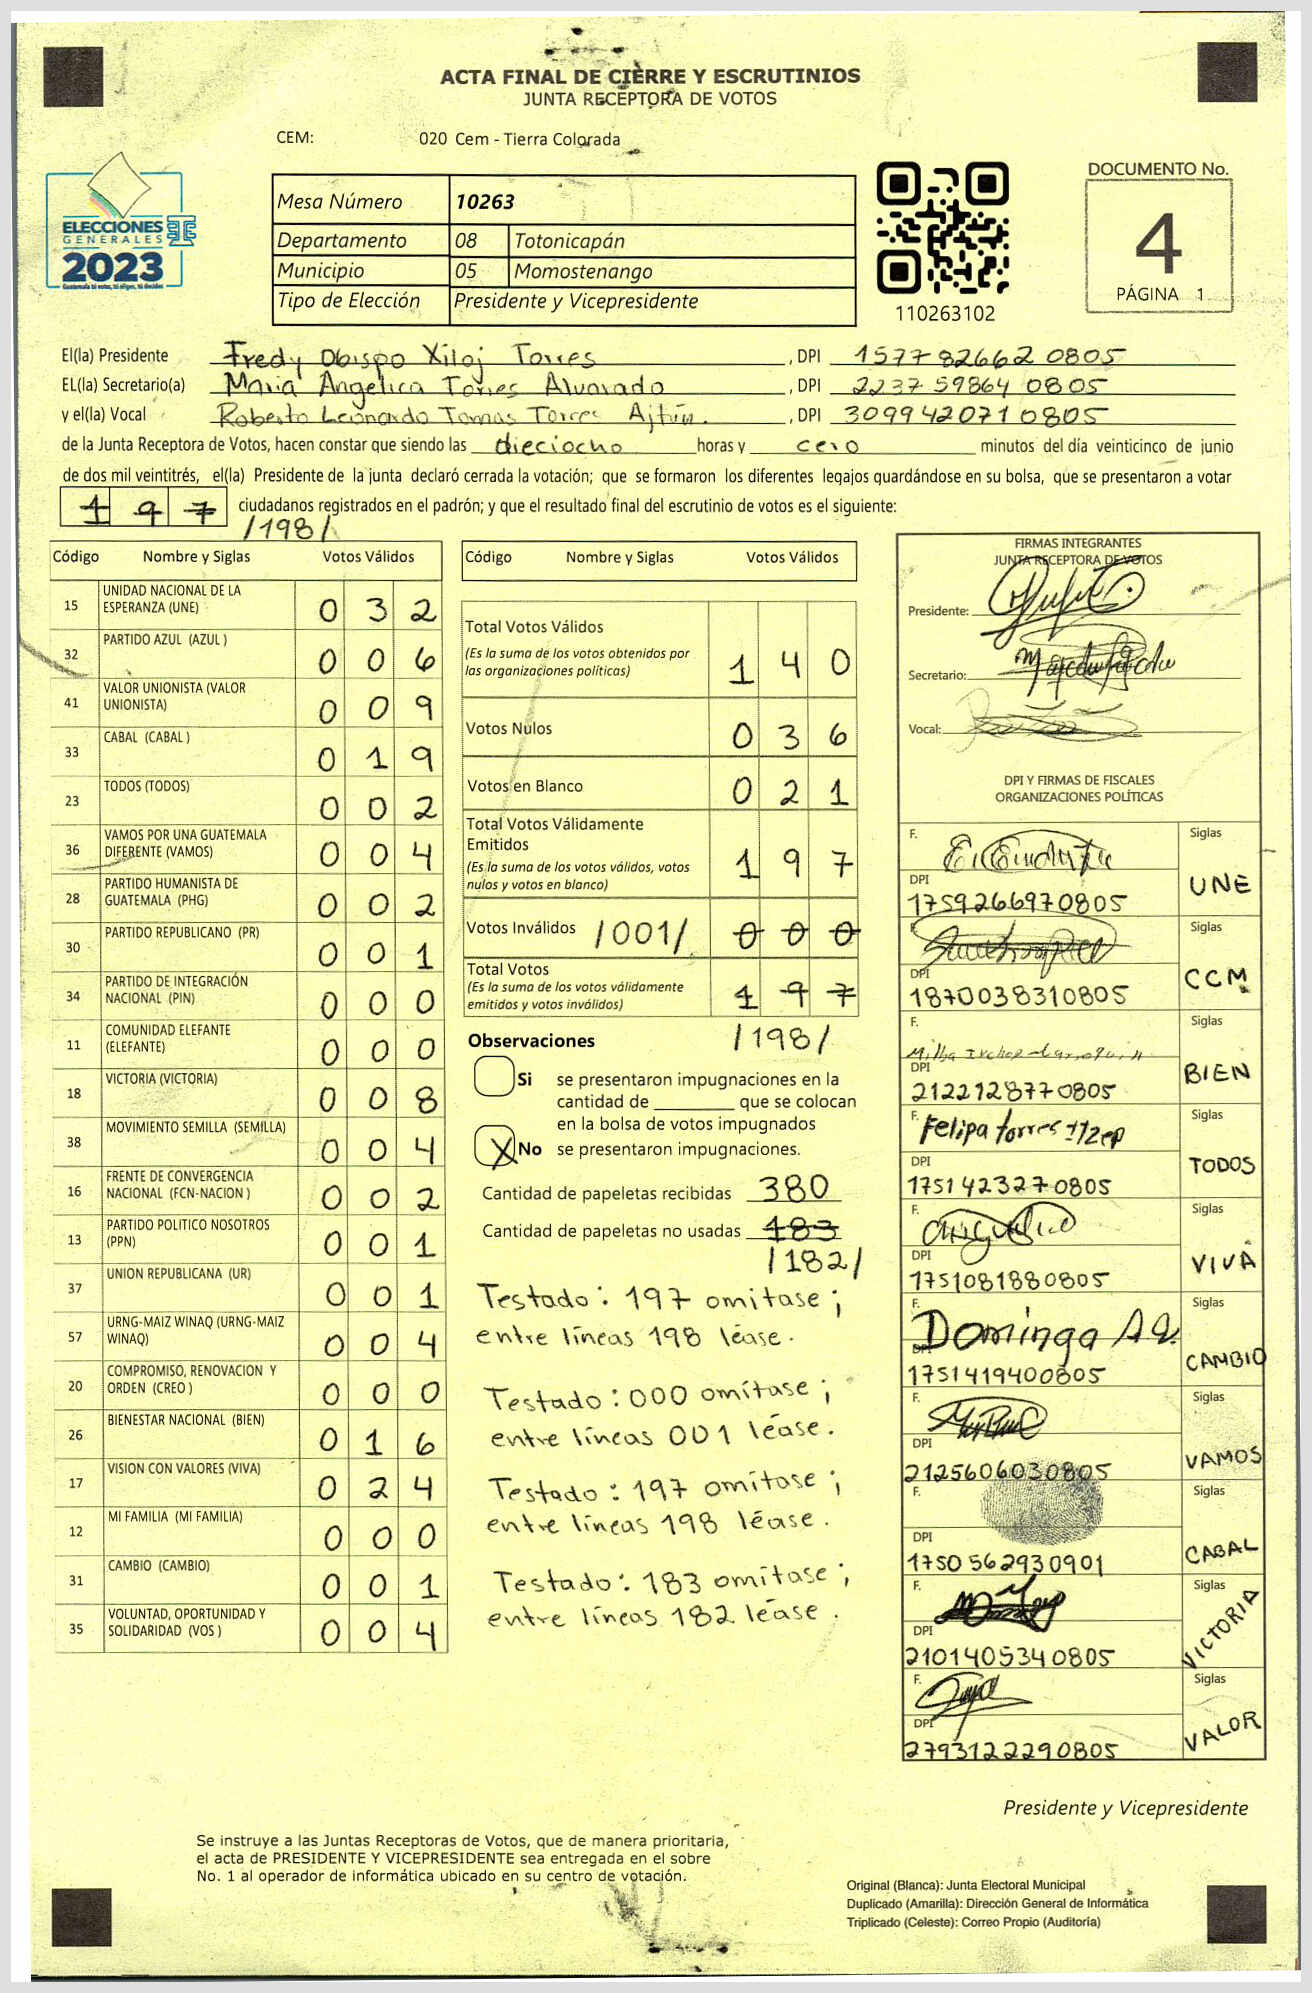 ACTA FINAL DE CIERRE Y ESCRUTINIOS
JUNTA RECEPTORA DE VOTOS
CEM: 020 Cem - Tierra Colorada
ELECCIONES
GENERALES
2023
Guatemala tú votas, tú eliges, tú decides
Mesa Número 10263
Departamento 08 Totonicapán
Municipio 05 Momostenango
Tipo de Elección Presidente y Vicepresidente
110263102
DOCUMENTO No.
4
PÁGINA 1
El(la) Presidente Fredy Obispo Xiloj Torres , DPI 1577 82662 0805
EL(la) Secretario(a) Maria Angelica Torres Alvarado , DPI 2237 59864 0805
y el(la) Vocal Roberto Leonardo Tomas Torres Ajtún. , DPI 3099420710805
de la Junta Receptora de Votos, hacen constar que siendo las dieciocho horas y cero minutos del día veinticinco de junio
de dos mil veintitrés, el(la) Presidente de la junta declaró cerrada la votación; que se formaron los diferentes legajos guardándose en su bolsa, que se presentaron a votar
197 ciudadanos registrados en el padrón; y que el resultado final del escrutinio de votos es el siguiente:
/198/
Código Nombre y Siglas Votos Válidos
15 UNIDAD NACIONAL DE LA ESPERANZA (UNE) 0 3 2
32 PARTIDO AZUL (AZUL ) 0 0 6
41 VALOR UNIONISTA (VALOR UNIONISTA) 0 0 9
33 CABAL (CABAL ) 0 1 9
23 TODOS (TODOS) 0 0 2
36 VAMOS POR UNA GUATEMALA DIFERENTE (VAMOS) 0 0 4
28 PARTIDO HUMANISTA DE GUATEMALA (PHG) 0 0 2
30 PARTIDO REPUBLICANO (PR) 0 0 1
34 PARTIDO DE INTEGRACIÓN NACIONAL (PIN) 0 0 0
11 COMUNIDAD ELEFANTE (ELEFANTE) 0 0 0
18 VICTORIA (VICTORIA) 0 0 8
38 MOVIMIENTO SEMILLA (SEMILLA) 0 0 4
16 FRENTE DE CONVERGENCIA NACIONAL (FCN-NACION ) 0 0 2
13 PARTIDO POLITICO NOSOTROS (PPN) 0 0 1
37 UNION REPUBLICANA (UR) 0 0 1
57 URNG-MAIZ WINAQ (URNG-MAIZ WINAQ) 0 0 4
20 COMPROMISO, RENOVACION Y ORDEN (CREO ) 0 0 0
26 BIENESTAR NACIONAL (BIEN) 0 1 6
17 VISION CON VALORES (VIVA) 0 2 4
12 MI FAMILIA (MI FAMILIA) 0 0 0
31 CAMBIO (CAMBIO) 0 0 1
35 VOLUNTAD, OPORTUNIDAD Y SOLIDARIDAD (VOS ) 0 0 4
Código Nombre y Siglas Votos Válidos
Total Votos Válidos 1 4 0
(Es la suma de los votos obtenidos por
las organizaciones políticas)
Votos Nulos 0 3 6
Votos en Blanco 0 2 1
Total Votos Válidamente
Emitidos 1 9 7
(Es la suma de los votos válidos, votos
nulos y votos en blanco)
Votos Inválidos /001/ 0 0 0
Total Votos 1 9 7
(Es la suma de los votos válidamente
emitidos y votos inválidos)
/198/
Observaciones
Si se presentaron impugnaciones en la
cantidad de ________ que se colocan
en la bolsa de votos impugnados
X No se presentaron impugnaciones.
Cantidad de papeletas recibidas 380
Cantidad de papeletas no usadas 183
/182/
Testado: 197 omitase;
entre líneas 198 léase.
Testado: 000 omítase;
entre líneas 001 léase.
Testado: 197 omítase;
entre líneas 198 léase.
Testado: 183 omítase;
entre líneas 182 léase.
FIRMAS INTEGRANTES
JUNTA RECEPTORA DE VOTOS
Presidente:
Secretario:
Vocal:
DPI Y FIRMAS DE FISCALES
ORGANIZACIONES POLÍTICAS
F. Siglas
DPI UNE
1759266970805
F. Siglas
DPI CCM
1870038310805
F. Siglas
DPI BIEN
2122128770805
F. Felipa torres Siglas
DPI TODOS
1751423270805
F. Siglas
DPI VIVA
1751081880805
F. Dominga Siglas
DPI CAMBIO
1751419400805
F. Siglas
DPI VAMOS
2125606030805
F. Siglas
DPI CABAL
1750562930901
F. Siglas
DPI VICTORIA
2101405340805
F. Siglas
DPI VALOR
2793122290805
Presidente y Vicepresidente
Se instruye a las Juntas Receptoras de Votos, que de manera prioritaria,
el acta de PRESIDENTE Y VICEPRESIDENTE sea entregada en el sobre
No. 1 al operador de informática ubicado en su centro de votación.
Original (Blanca): Junta Electoral Municipal
Duplicado (Amarilla): Dirección General de Informática
Triplicado (Celeste): Correo Propio (Auditoría)